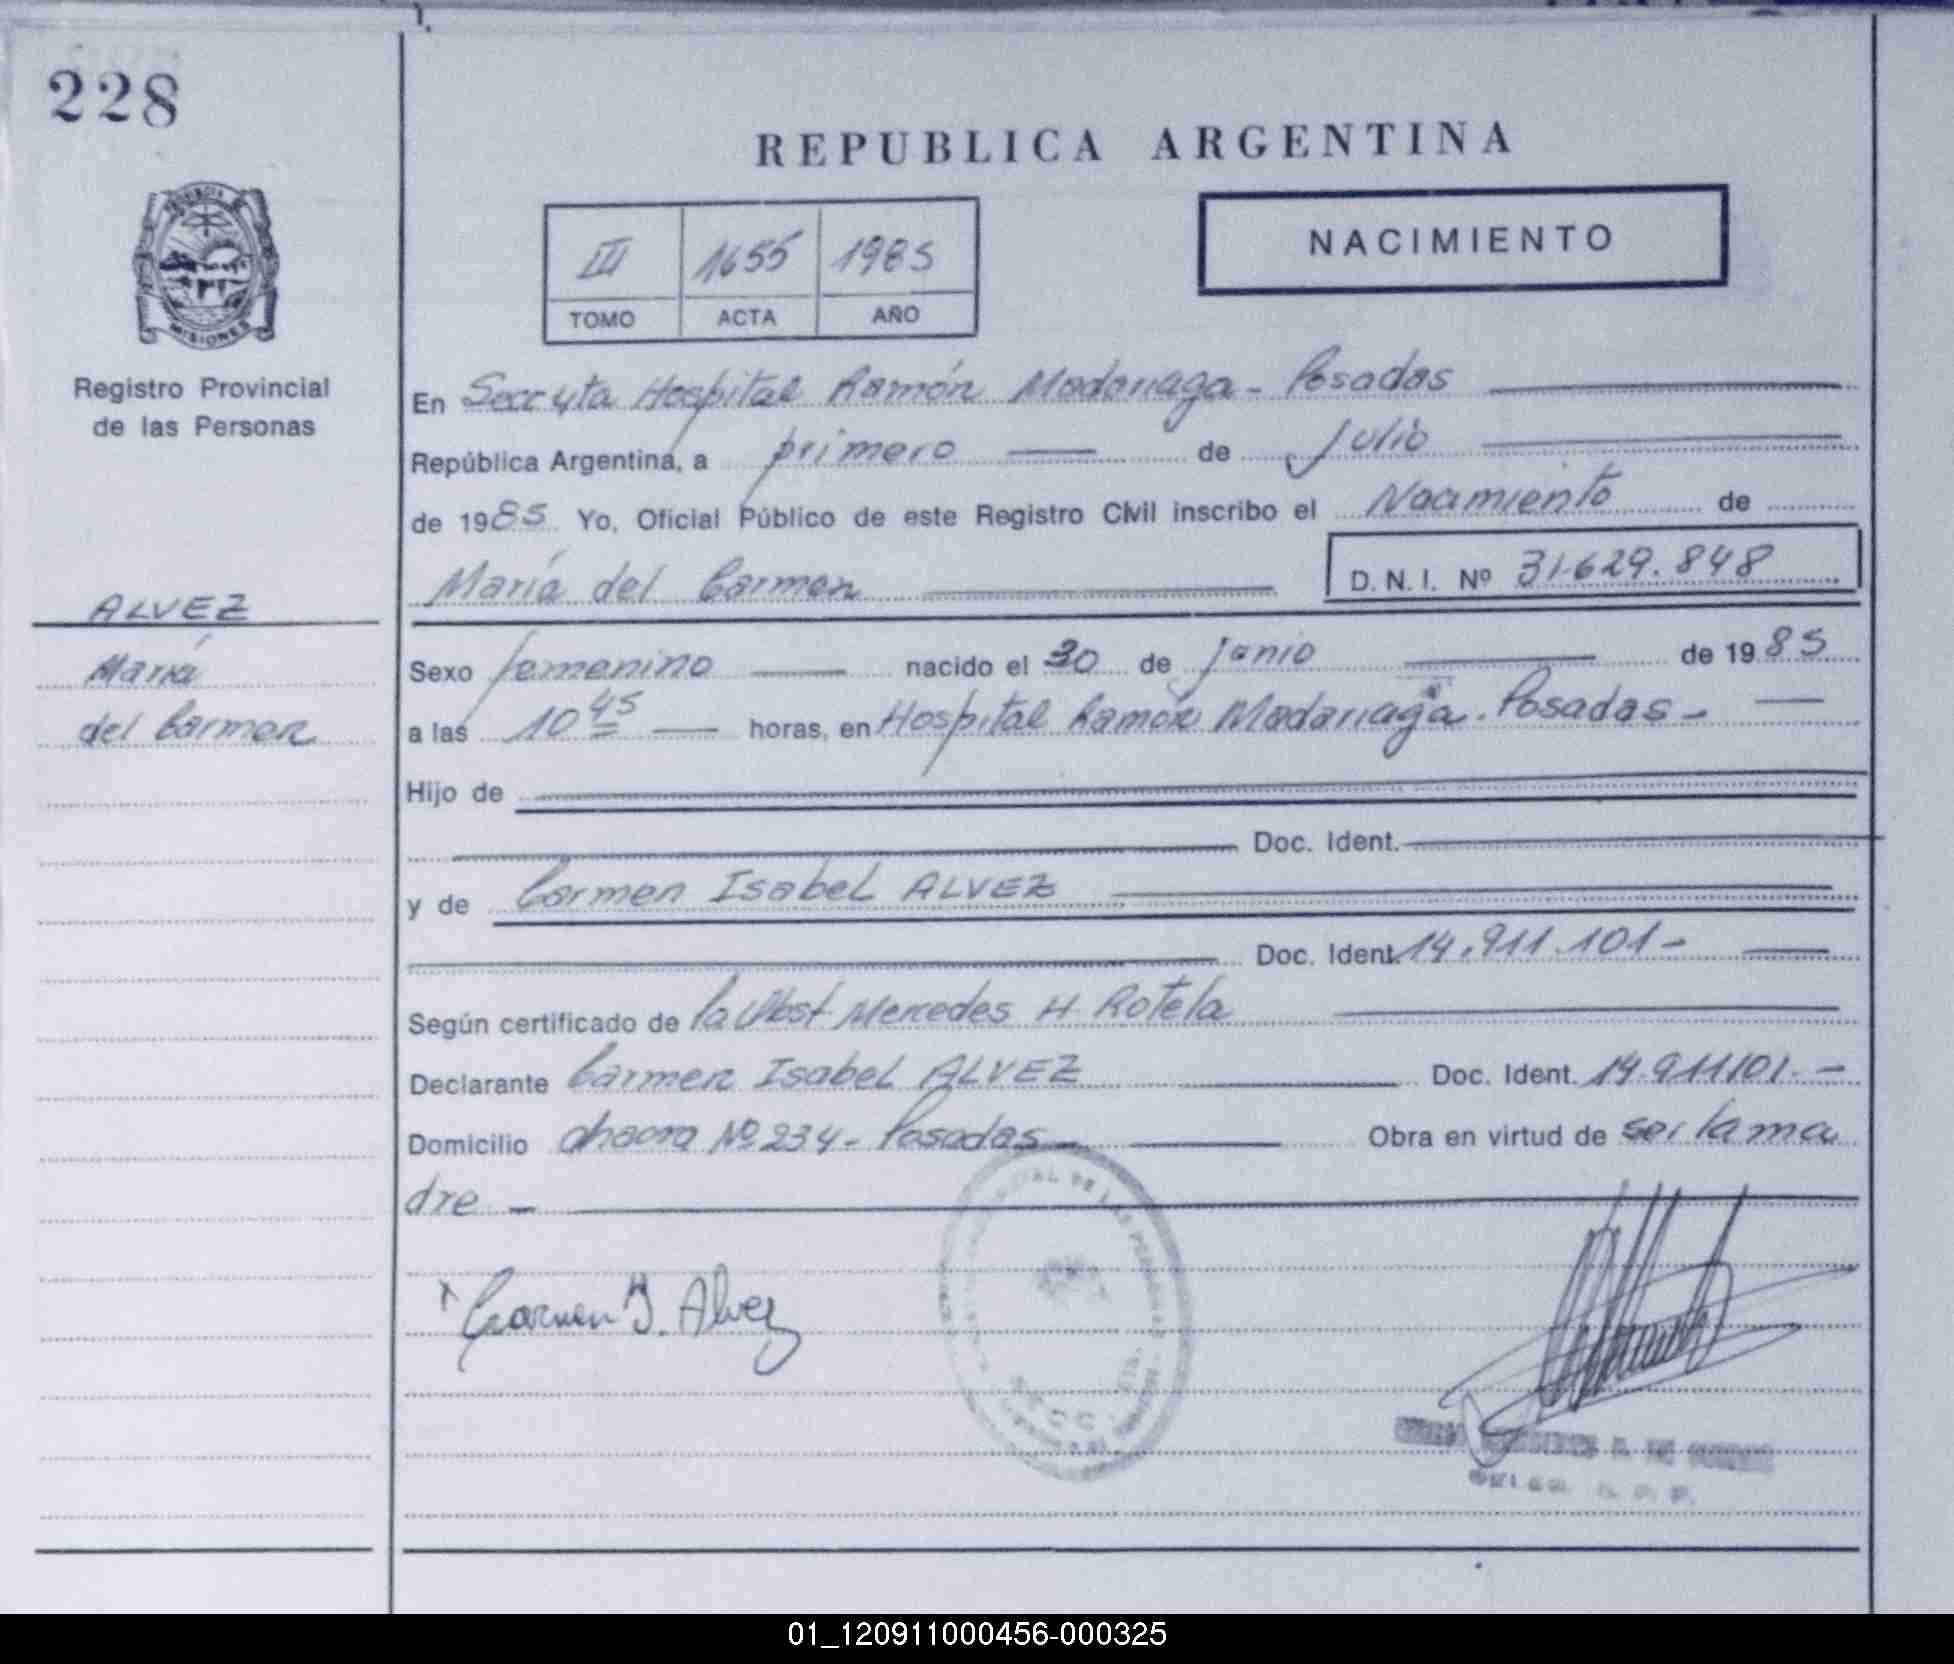 228
REPUBLICA ARGENTINA
PROVINCIA DE
MISIONES
III 1655 1985
TOMO ACTA AÑO
NACIMIENTO
Registro Provincial
de las Personas
En Secc 4ta Hospital Ramón Madariaga - Posadas
República Argentina, a primero de Julio
de 1985 Yo, Oficial Público de este Registro Civil inscribo el Nacimiento de
María del Carmen D.N.I. Nº 31.629.848
ALVEZ
María
del Carmen
Sexo femenino nacido el 30 de Junio de 1985
a las 10 45 horas, en Hospital Ramón Madariaga. Posadas -
Hijo de
Doc. Ident.
y de Carmen Isabel ALVEZ
Doc. Ident. 14.911.101-
Según certificado de la Obst Mercedes H Rotela
Declarante Carmen Isabel ALVEZ Doc. Ident. 14.911.101.-
Domicilio chacra Nº 234 - Posadas - Obra en virtud de ser la ma
dre -
Carmen I. Alvez
DE LAS PERSONAS
SECC.
01_120911000456-000325